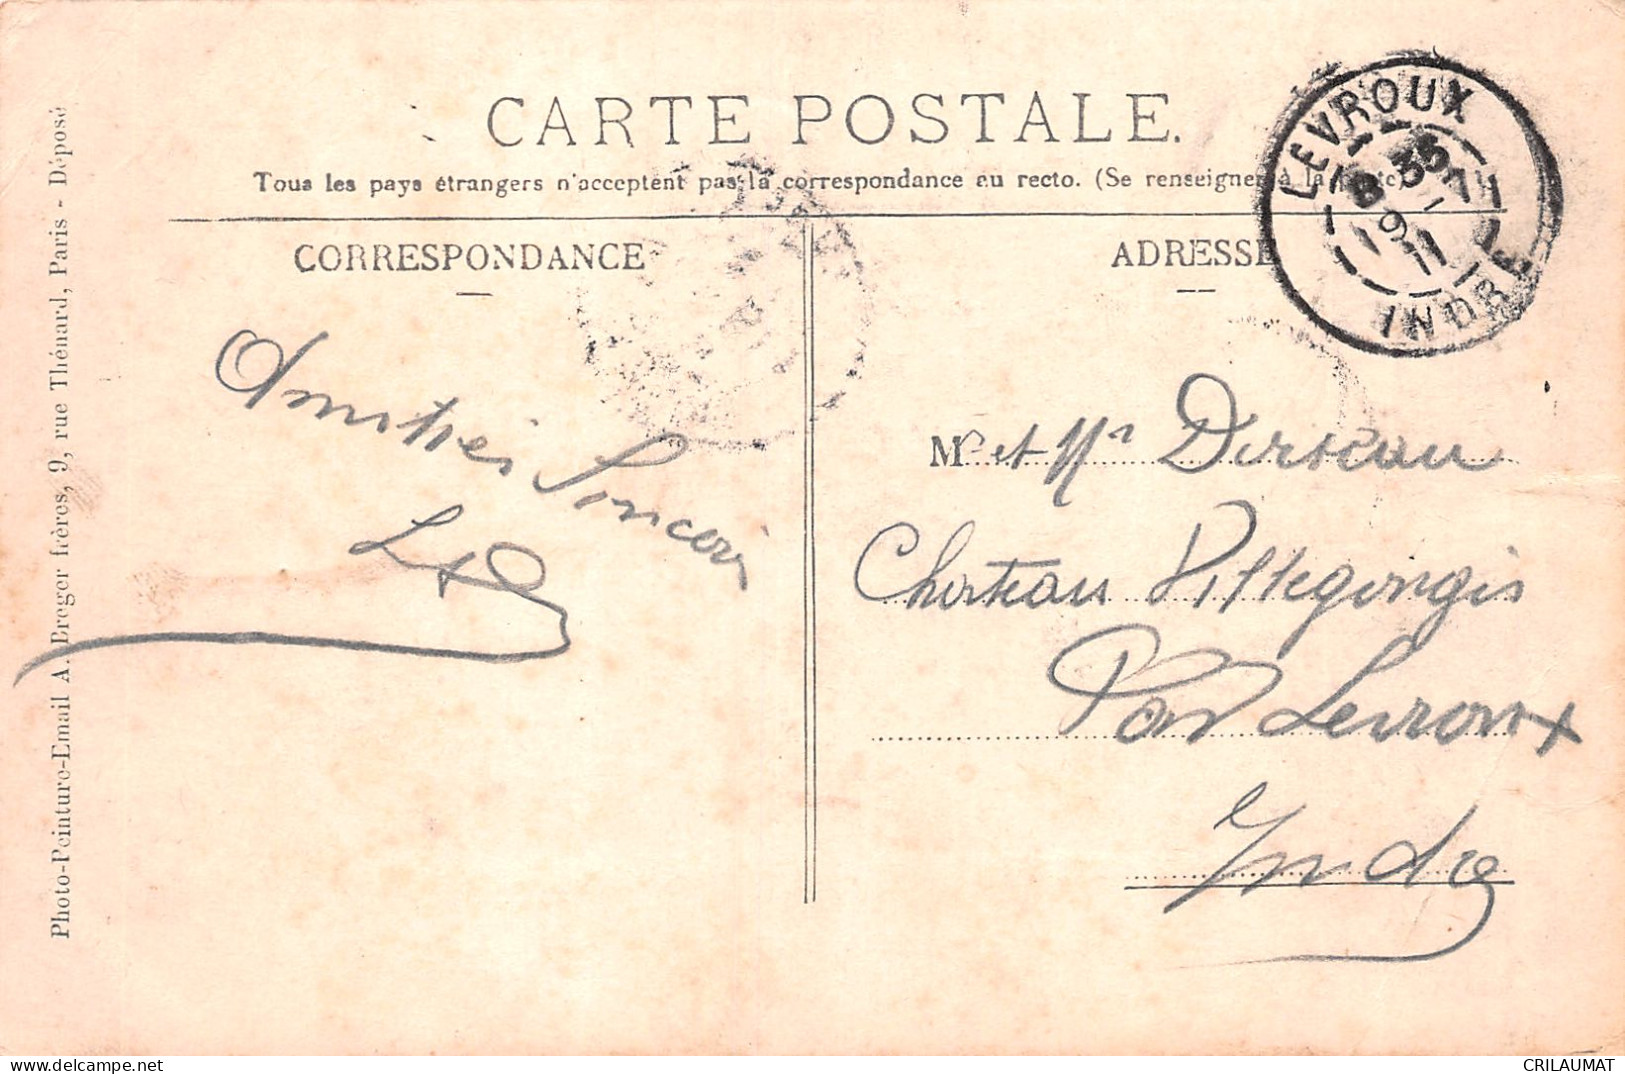 CARTE POSTALE.
Tous les pays étrangers n'acceptent pas la correspondance au recto. (Se renseigner à la
CORRESPONDANCE
ADRESSE
LEVROUX
8 35
9
11
INDRE
Amitiés Sincères
Mr et Mme
Chateau Villegongis
Par Levroux
Indre
Photo-Peinture-Email A. Breger frères, 9, rue Thénard, Paris - Déposé
CRILAUMAT